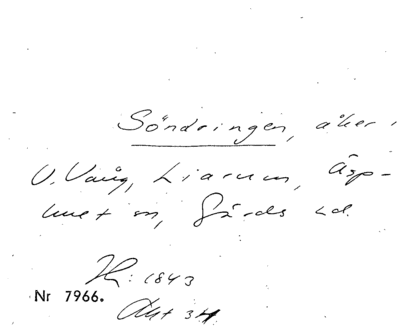 Söndringen, åker i
V. Vång, Liarum, Äsp-
hult sn, Gärds hd.
H: 1843
Nr 7966.
Akt 34